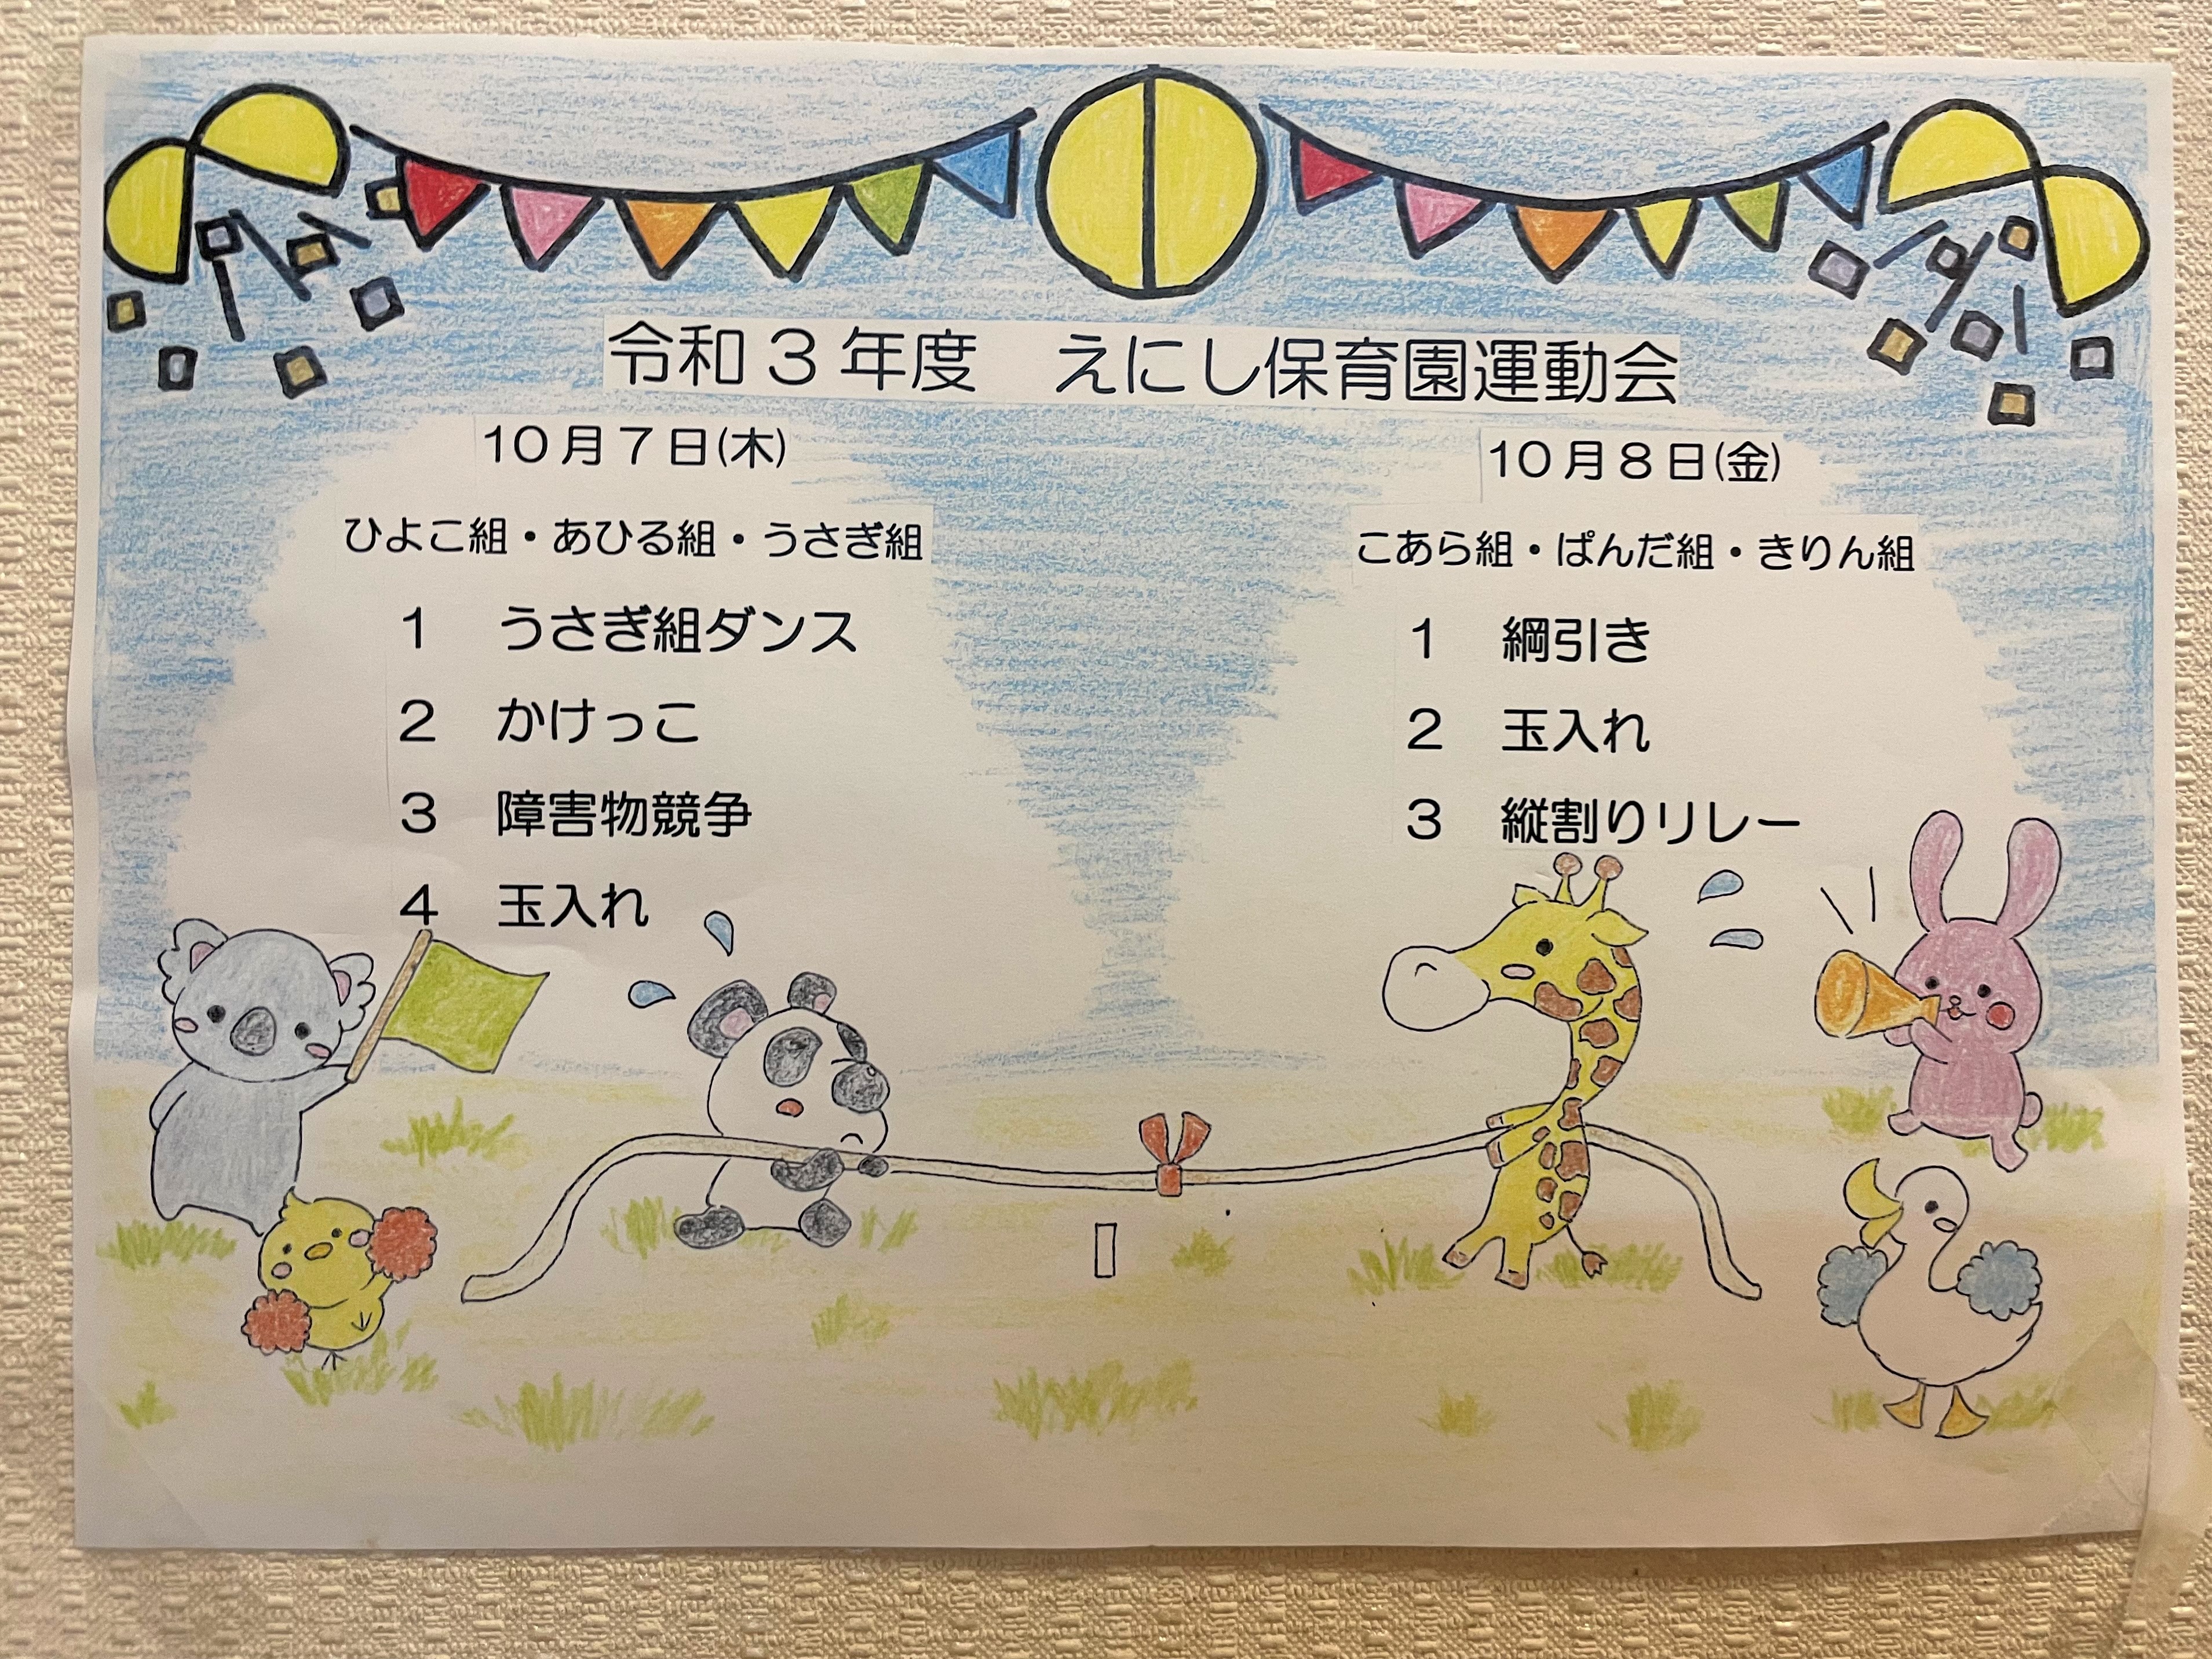 令和３年度　えにし保育園運動会
10月7日(木)
ひよこ組・あひる組・うさぎ組
1　うさぎ組ダンス
2　かけっこ
3　障害物競争
4　玉入れ
10月8日(金)
こあら組・ぱんだ組・きりん組
1　綱引き
2　玉入れ
3　縦割りリレー